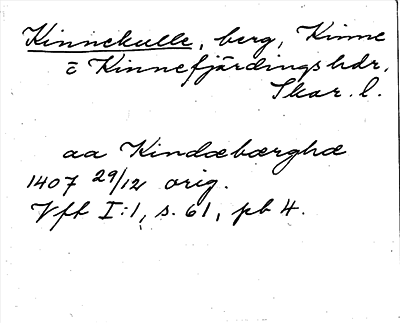 Kinnekulle, berg, Kinne
o Kinnefjärdings hdr,
Skar. l.
aa Kindæbærghæ
1407 29/12 orig.
Vff I:1, s. 61, pb 4.